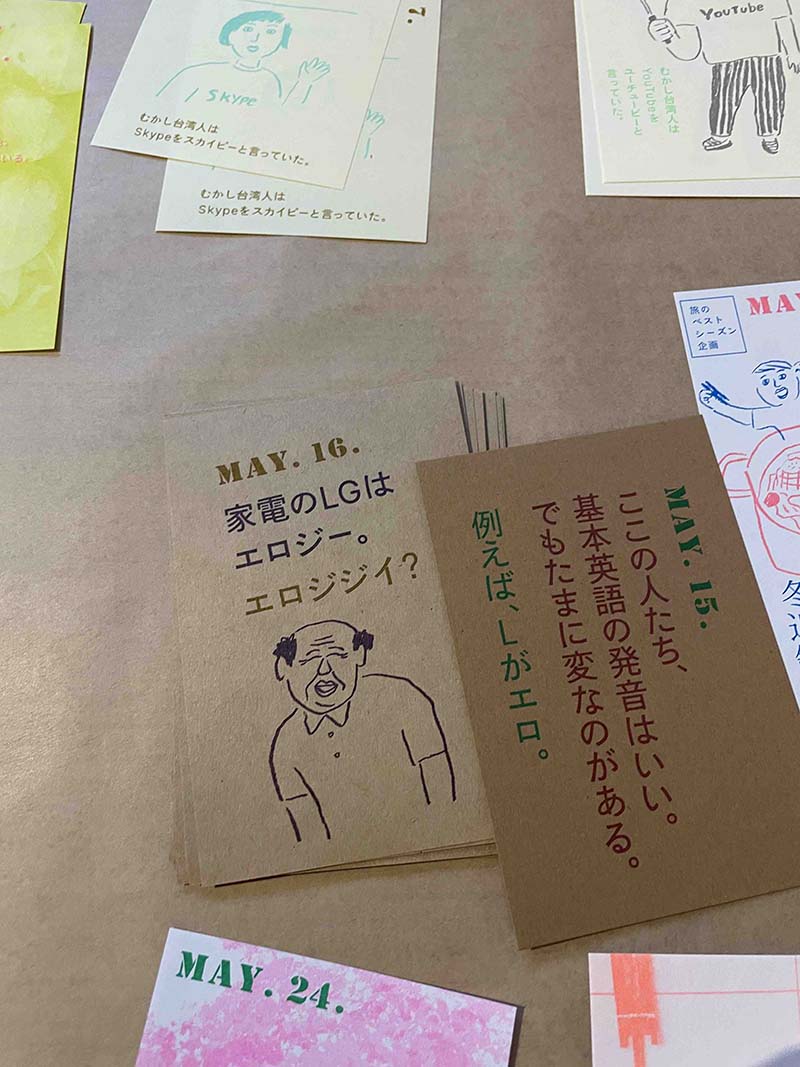 いる。
7.
SKYPE
むかし台湾人は
Skypeをスカイピーと言っていた。
むかし台湾人は
Skypeをスカイピーと言っていた。
YouTube
むかし台湾人は
YouTubeを
ユーチュービーと
言っていた。
旅の
ベスト
シーズン
企画
MAY. 16.
家電のLGは
エロジー。
エロジジイ?
MAY. 15.
ここの人たち、
基本英語の発音はいい。
でもたまに変なのがある。
例えば、Lがエロ。
MAY. 24.